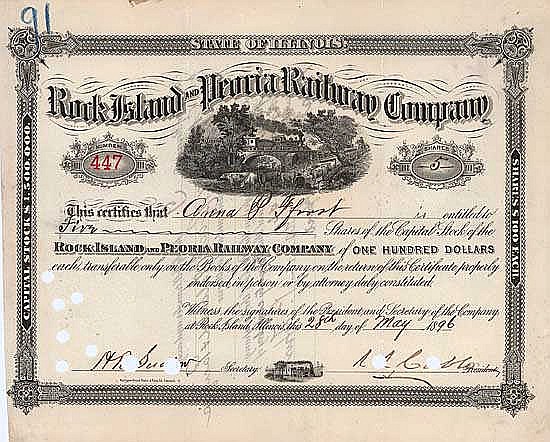 91
STATE OF ILLINOIS.
Rock Island AND Peoria Railway Company
NUMBER
447
SHARES
5
This certifies that Anna is entitled to
Five Shares of the Capital Stock of the
ROCK ISLAND AND PEORIA RAILWAY COMPANY of ONE HUNDRED DOLLARS
each, transferable only on the Books of the Company on the return of this Certificate properly
endorsed in person or by attorney duly constituted.
Witness, the signatures of the President and Secretary of the Company
at Rock Island, Illinois, this 28th day of May 1896
Secretary.
President.
CAPITAL STOCK
SHARES $100 EACH